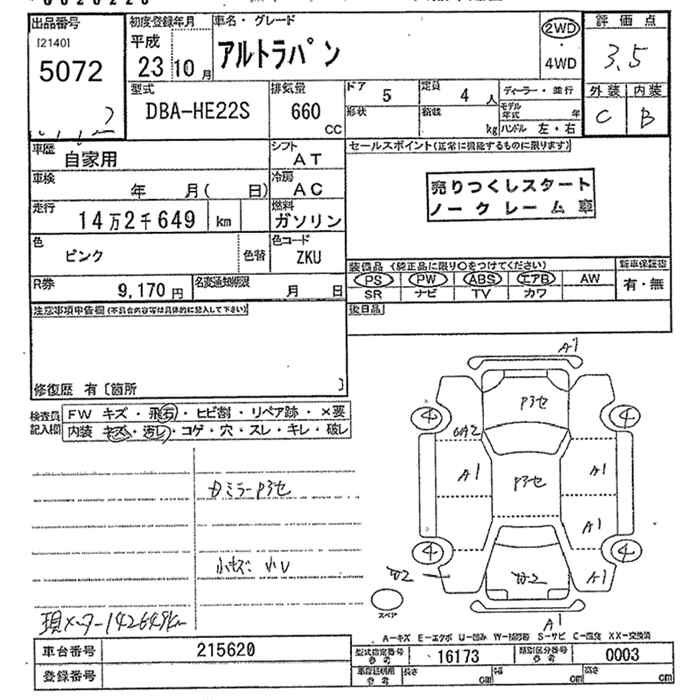 出品番号 初度登録年月 車名・グレード 評価点
[2140] 平成 アルトラパン 2WD 3.5
5072 23年10月 ・4WD 外装 内装
型式 排気量 ドア 5 定員 4人 ディーラー・並行 C B
DBA-HE22S 660 CC 形状 kg モデル年式 年
ハンドル 左・右
車歴 自家用 シフト AT セールスポイント(正常に機能するものに限ります)
車検 年 月( 日) 冷房 AC 売りつくしスタート
走行 14万2千649 km 燃料 ガソリン ノークレーム車
色 ピンク 色替 色コード ZKU
装備品 (純正品に限り○をつけてください) 新車保証書
R券 9,170円 名変通知期限 月 日 PS PW ABS エアB AW 有・無
SR ナビ TV カワ
注意事項申告欄(不具合内容等は具体的に記入して下さい) 後日品
修復歴 有〔箇所 〕
検査員記入欄 FW キズ・飛石・ヒビ割・リペア跡・×要
内装 キズ・汚レ・コゲ・穴・スレ・キレ・破レ
A1
P3セ
4 4
A1 P3セ A1
A1
4 4
A1
A1
スペア
現メーター142649km
A-キズ E-エクボ U-凹み W-補修跡 S-サビ C-腐食 XX-交換済
車台番号 215620 型式指定番号 参考 16173 類別区分番号 参考 0003
登録番号 参考 長さ cm 幅 cm 高さ cm